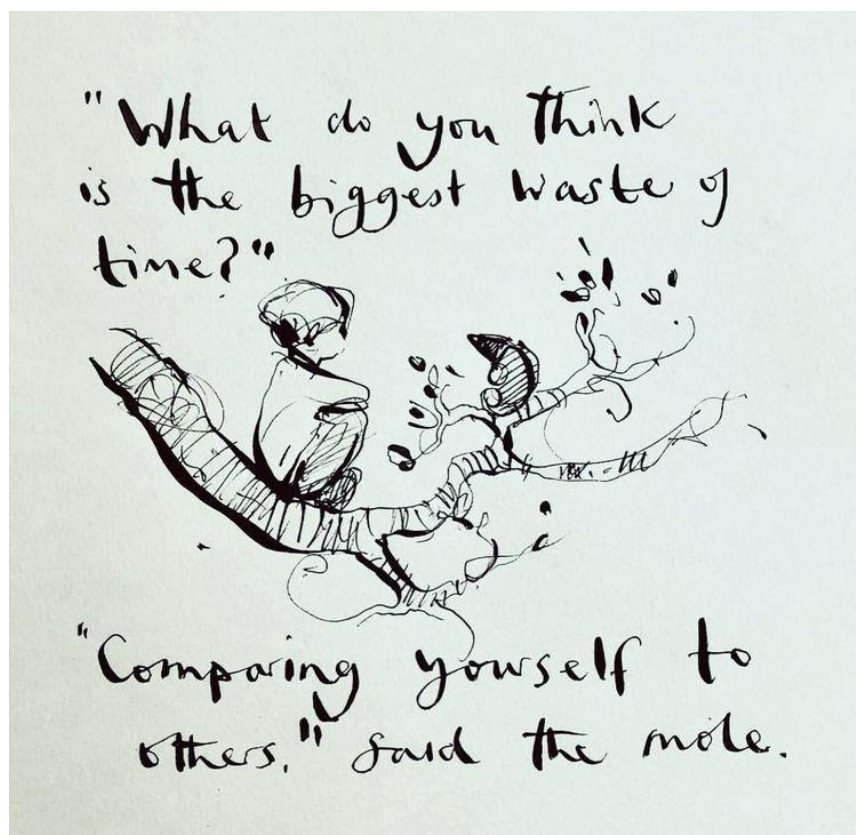 "What do you think
is the biggest waste of
time?"
"Comparing yourself to
others," said the mole.